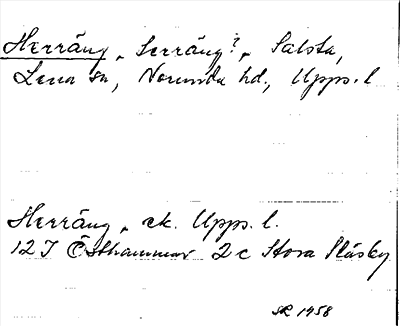 Herräng, Serräng?, Salsta,
Lena sn, Norunda hd., Upps. l.
Herräng, ek. Upps. l.
12 I Östhammar 2 c Stora Släsby
SR 1958